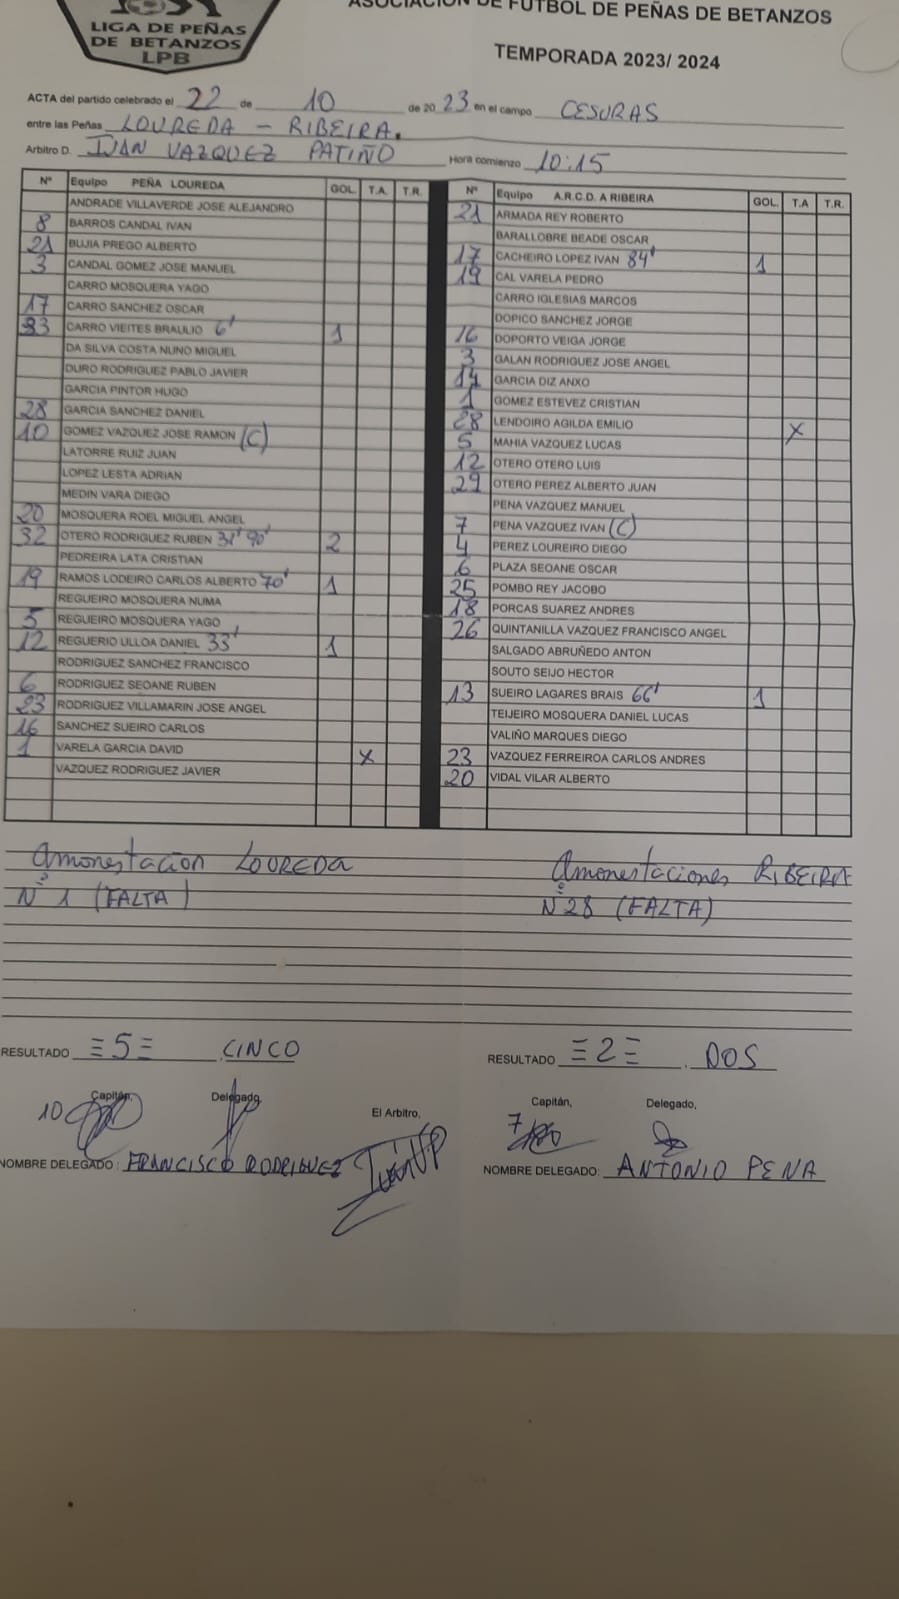 ASOCIACIÓN DE FÚTBOL DE PEÑAS DE BETANZOS
LIGA DE PEÑAS
DE BETANZOS
LPB
TEMPORADA 2023/ 2024
ACTA del partido celebrado el 22 de 10 de 20 23 en el campo CESURAS
entre las Peñas LOUREDA - RIBEIRA.
Arbitro D. IVAN VAZQUEZ PATIÑO Hora comienzo 10:15
Nº Equipo PEÑA LOUREDA GOL. T.A. T.R.
ANDRADE VILLAVERDE JOSE ALEJANDRO
8 BARROS CANDAL IVAN
21 BUJIA PREGO ALBERTO
3 CANDAL GOMEZ JOSE MANUEL
CARRO MOSQUERA YAGO
17 CARRO SANCHEZ OSCAR
33 CARRO VIEITES BRAULIO 6' 1
DA SILVA COSTA NUNO MIGUEL
DURO RODRIGUEZ PABLO JAVIER
GARCIA PINTOR HUGO
28 GARCIA SANCHEZ DANIEL
10 GOMEZ VAZQUEZ JOSE RAMON (C)
LATORRE RUIZ JUAN
LOPEZ LESTA ADRIAN
MEDIN VARA DIEGO
20 MOSQUERA ROEL MIGUEL ANGEL
32 OTERO RODRIGUEZ RUBEN 31' 90' 2
PEDREIRA LATA CRISTIAN
19 RAMOS LODEIRO CARLOS ALBERTO 70' 1
REGUEIRO MOSQUERA NUMA
5 REGUEIRO MOSQUERA YAGO
12 REGUERIO ULLOA DANIEL 33' 1
RODRIGUEZ SANCHEZ FRANCISCO
6 RODRIGUEZ SEOANE RUBEN
23 RODRIGUEZ VILLAMARIN JOSE ANGEL
16 SANCHEZ SUEIRO CARLOS
1 VARELA GARCIA DAVID X
VAZQUEZ RODRIGUEZ JAVIER
Nº Equipo A.R.C.D. A RIBEIRA GOL. T.A T.R.
21 ARMADA REY ROBERTO
BARALLOBRE BEADE OSCAR
17 CACHEIRO LOPEZ IVAN 84' 1
19 CAL VARELA PEDRO
CARRO IGLESIAS MARCOS
DOPICO SANCHEZ JORGE
16 DOPORTO VEIGA JORGE
3 GALAN RODRIGUEZ JOSE ANGEL
14 GARCIA DIZ ANXO
1 GOMEZ ESTEVEZ CRISTIAN
28 LENDOIRO AGILDA EMILIO X
5 MAHIA VAZQUEZ LUCAS
12 OTERO OTERO LUIS
29 OTERO PEREZ ALBERTO JUAN
PENA VAZQUEZ MANUEL
7 PENA VAZQUEZ IVAN (C)
4 PEREZ LOUREIRO DIEGO
6 PLAZA SEOANE OSCAR
25 POMBO REY JACOBO
18 PORCAS SUAREZ ANDRES
26 QUINTANILLA VAZQUEZ FRANCISCO ANGEL
SALGADO ABRUÑEDO ANTON
SOUTO SEIJO HECTOR
13 SUEIRO LAGARES BRAIS 66' 1
TEIJEIRO MOSQUERA DANIEL LUCAS
VALIÑO MARQUES DIEGO
23 VAZQUEZ FERREIROA CARLOS ANDRES
20 VIDAL VILAR ALBERTO
Amonestación LOUREDA
Nº 1 (FALTA)
Amonestaciones RIBEIRA
Nº 28 (FALTA)
RESULTADO =5= . CINCO
RESULTADO =2= . DOS
Capitán, Delegado,
10
El Arbitro,
Capitán, Delegado,
7
NOMBRE DELEGADO: FRANCISCO RODRIGUEZ
Iván VP
NOMBRE DELEGADO: ANTONIO PENA